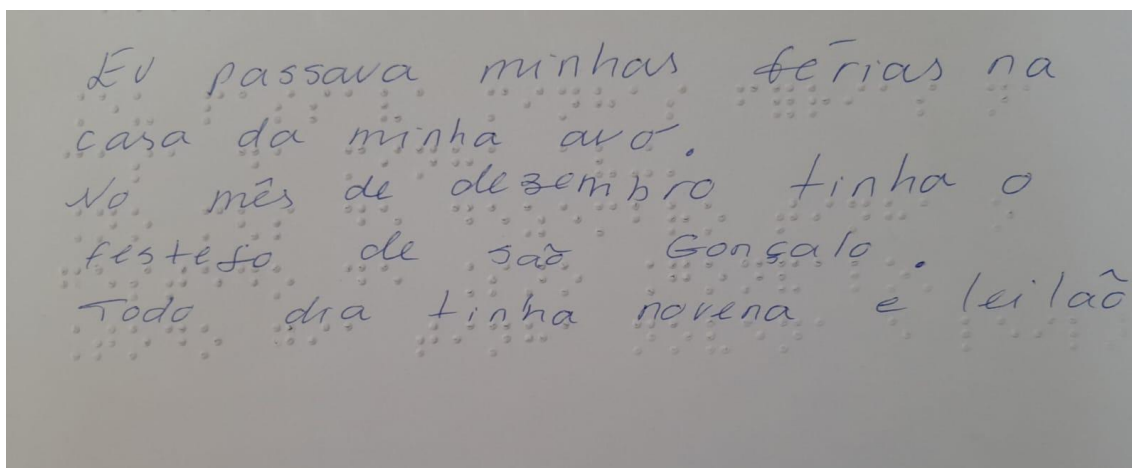 Eu passava minhas férias na
casa da minha avó.
No mês de dezembro tinha o
festejo de são Gonçalo.
Todo dia tinha novena e leilaõ